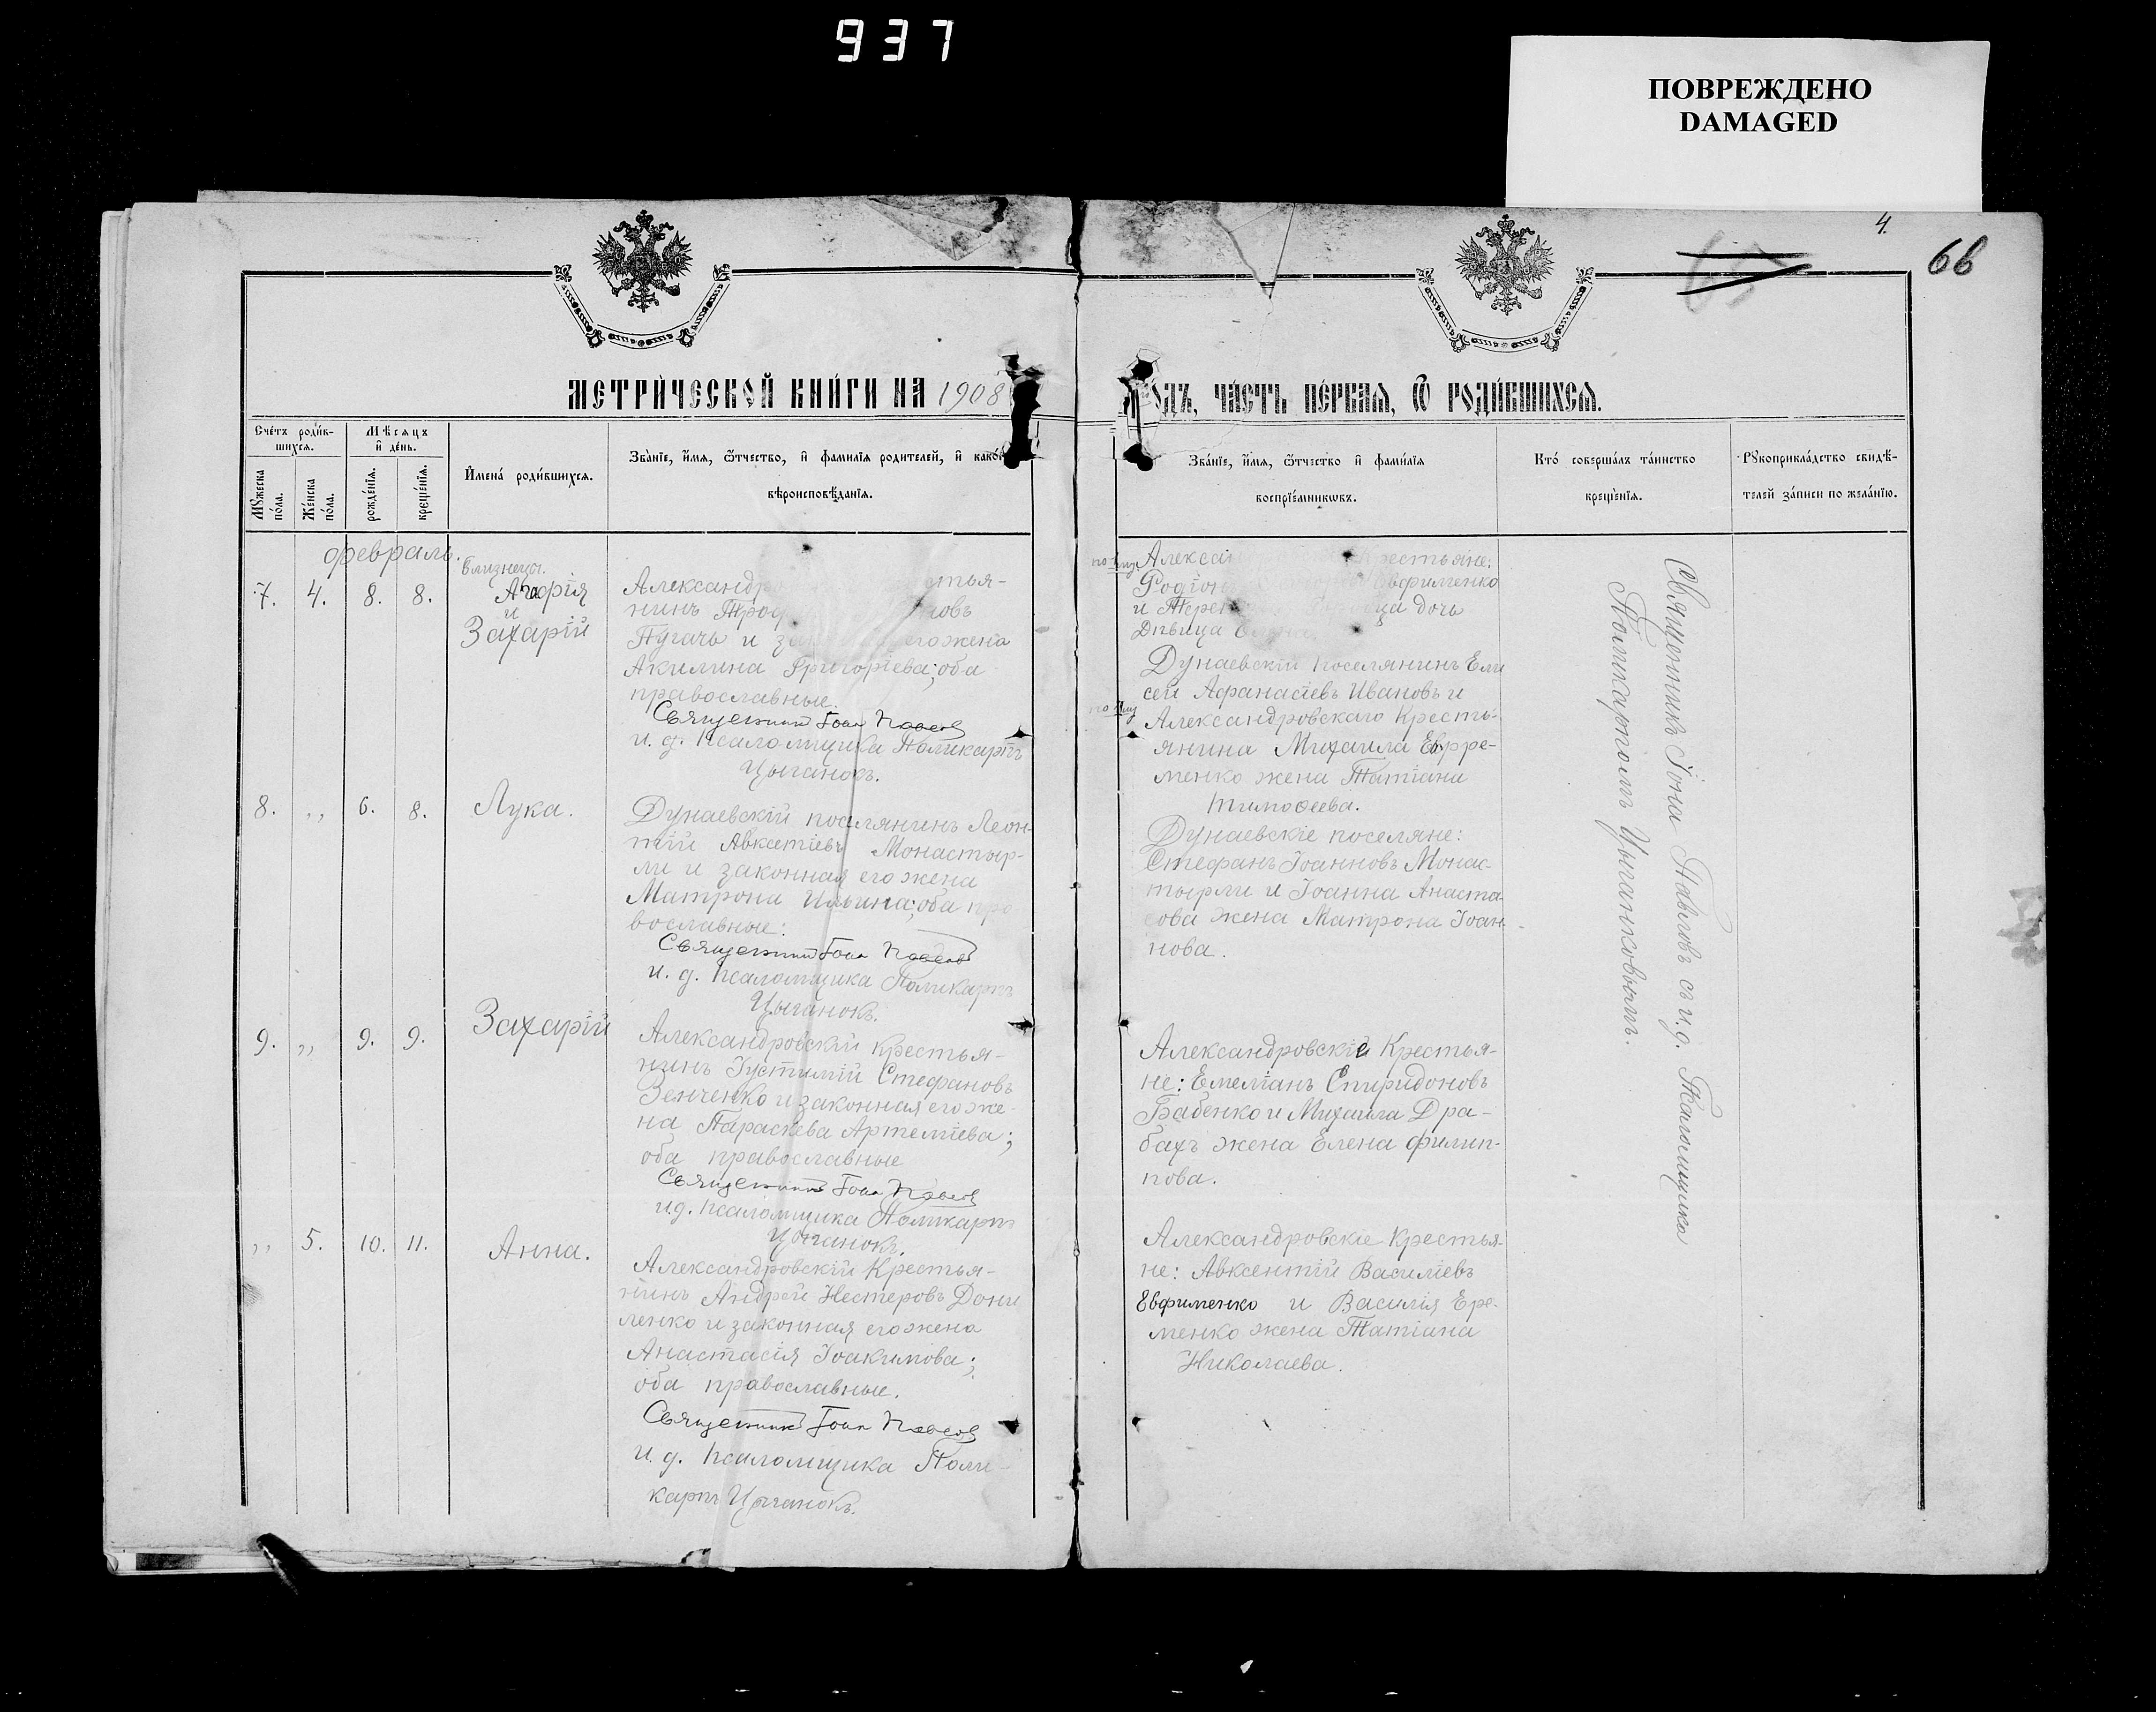 937
ПОВРЕЖДЕНО
DAMAGED
4.
66
МЕТРИ́ЧЕСКОЙ КНИ́ГИ НА 1908
ОДЪ, ЧА́СТЬ ПЕ́РВАЯ, Ѿ РОДИ́ВШИХСЯ.
Сче́тъ роди́в-
шихся.
Мѣ́сяцъ
и де́нь.
Мꙋ́жеска по́ла.
Же́нска по́ла.
рожде́нїя.
креще́нїя.
Имена́ роди́вшихся.
Зва́нїе, и́мя, ѻ́тчество, и фами́лїя роди́телей, и како́
вѣроисповѣ́данїя.
Зва́нїе, и́мя, ѻ́тчество и фами́лїя
воспрїе́мникωвъ.
Кто́ соверша́лъ та́инство
креще́нїя.
Рꙋкоприкла́дство свидѣ́-
телей за́писи по жела́нїю.
февраль.
близнецы.
7. 4. 8. 8.
и
Захарій
Александро стья-
нинъ
Пугачъ и его жена
Акилина Григоріева; оба
православные.
Священникъ Іона Павловъ
и. д. псаломщика Поликарпъ
Цыганокъ.
Крестьяне:
Евфименко
и дочь
Дѣвица
Дунаевскій поселянинъ Ели
сей Афанасіевъ Ивановъ и
Александровскаго Кресть-
янина Михаила Ефре-
менко жена Татіана
Тимофеева.
8. ,, 6. 8.
Лука.
Дунаевскій поселянинъ Леон-
тій Авксетіевъ Монастыр-
ли и законная его жена
Матрона Ильина; оба пра
вославные:
Священникъ Іона Павловъ
и. д. псаломщика Поликарпъ
Цыганокъ.
Дунаевскіе поселяне:
Стефанъ Іоанновъ Монас-
тырли и Іоанна Анаста
сова жена Матрона Іоан-
нова.
9. ,, 9. 9.
Захарій
Александровскій Крестья-
нинъ Іустимій Стефановъ
Зенченко и законная его же-
на Параскева Артеміева;
оба православные
Священникъ Іона Павловъ
и.д. псаломщика Поликарпъ
Цыганокъ.
Александровскіе Крестья-
не: Емеліанъ Спиридоновъ
Бабенко и Михаила Дра-
бахъ жена Елена Филип-
пова.
,, 5. 10. 11.
Анна.
Александровскій Крестья-
нинъ Андрей Нестеровъ Дони
ленко и законная его жена
Анастасія Іоакимова;
оба православные.
Священникъ Іона Павловъ
и. д. псаломщика Поли-
карпъ Цыганокъ.
Александровскіе Крестья-
не: Авксентій Василіевъ
Евфименко и Василія Ере-
менко жена Татіана
Николаева.
Священникъ Іона Павловъ съ и.д. Псаломщика
Поликарпомъ Цыганковымъ.